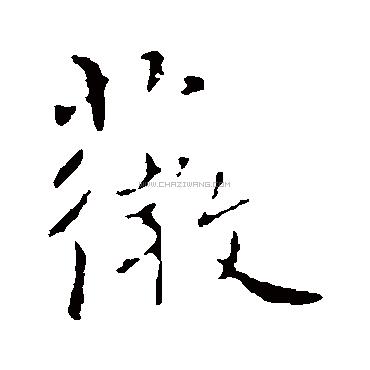 薇
WWW.CHAZIWANG.COM